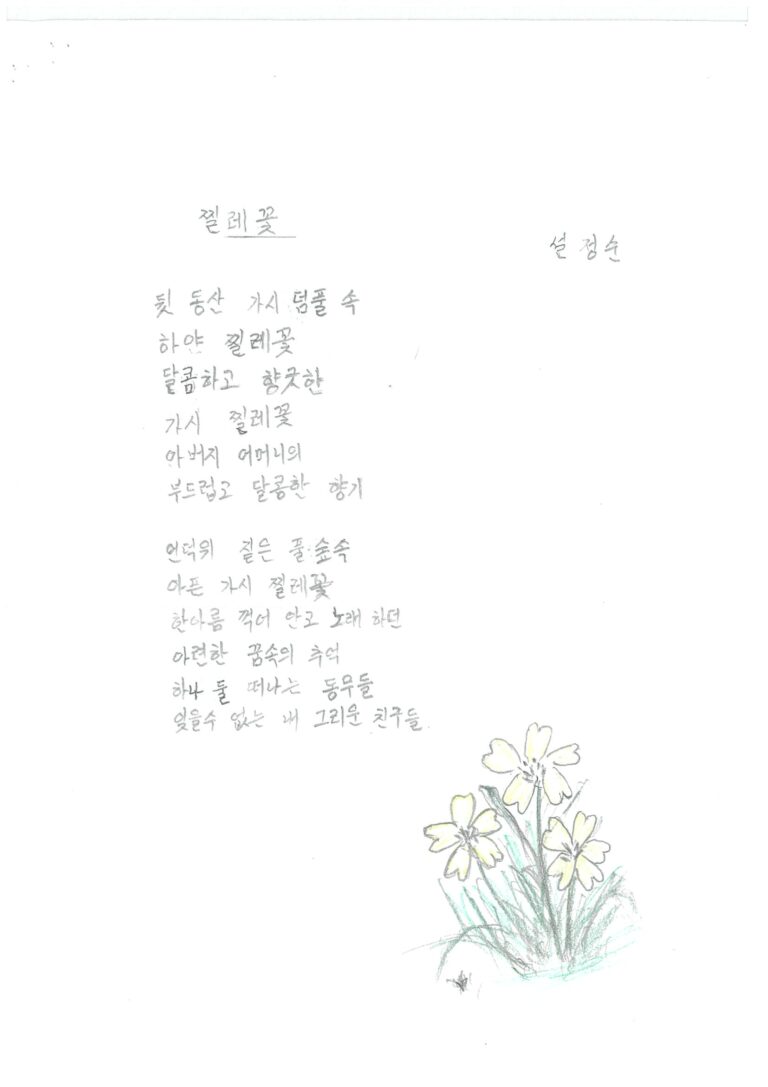 찔레꽃
설정순
뒷 동산 가시 덤풀 속
하얀 찔레꽃
달콤하고 향긋한
가시 찔레꽃
아버지 어머니의
부드럽고 달콩한 향기
언덕위 짙은 풀숲속
아픈 가시 찔레꽃
한아름 꺽어 안고 노래 하던
아련한 꿈속의 추억
하나 둘 떠나는 동무들
잊을수 없는 내 그리운 친구들